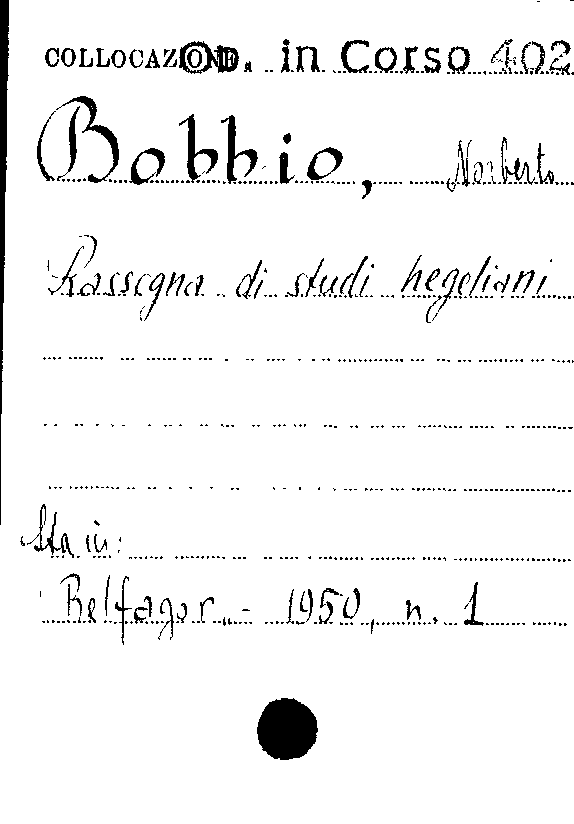 COLLOCAZIONE OD. in Corso 402
Bobbio, Norberto
Rassegna di studi hegeliani
Sta in:
Belfagor. - 1950, n. 1